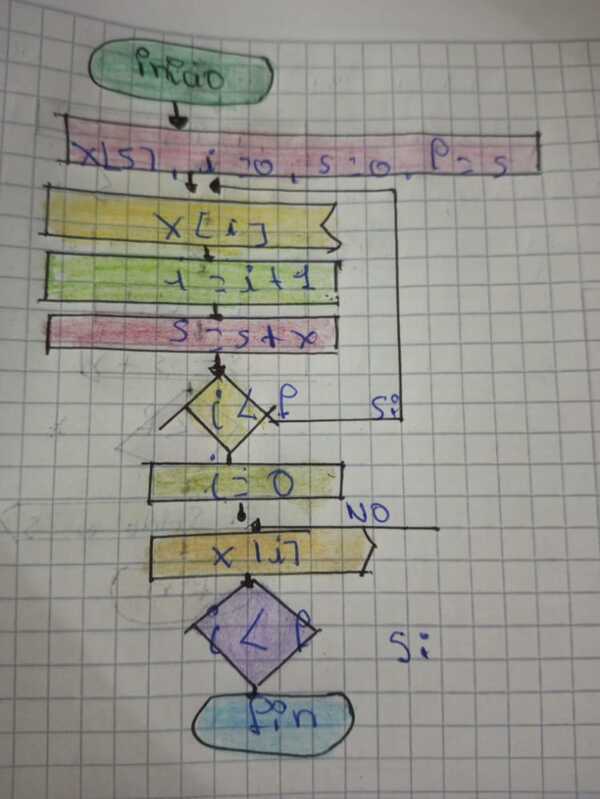 inicio
x[5], i=0, s=0, P=5
x[i]
i=i+1
s=s+x
i < P Si
i=0
NO
x[i]
i > P Si
fin